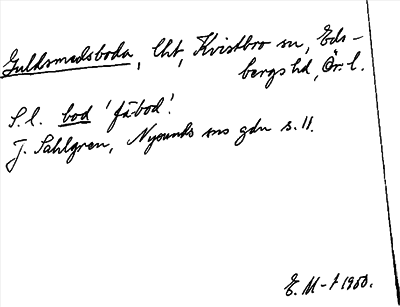 Guldsmedsboda, lht, Kvistbro sn, Eds-
bergs hd, Ör. l.
S. l. bod 'fäbod'.
J. Sahlgren, Nysunds sns gdn s. 11.
E. M-t 1950.